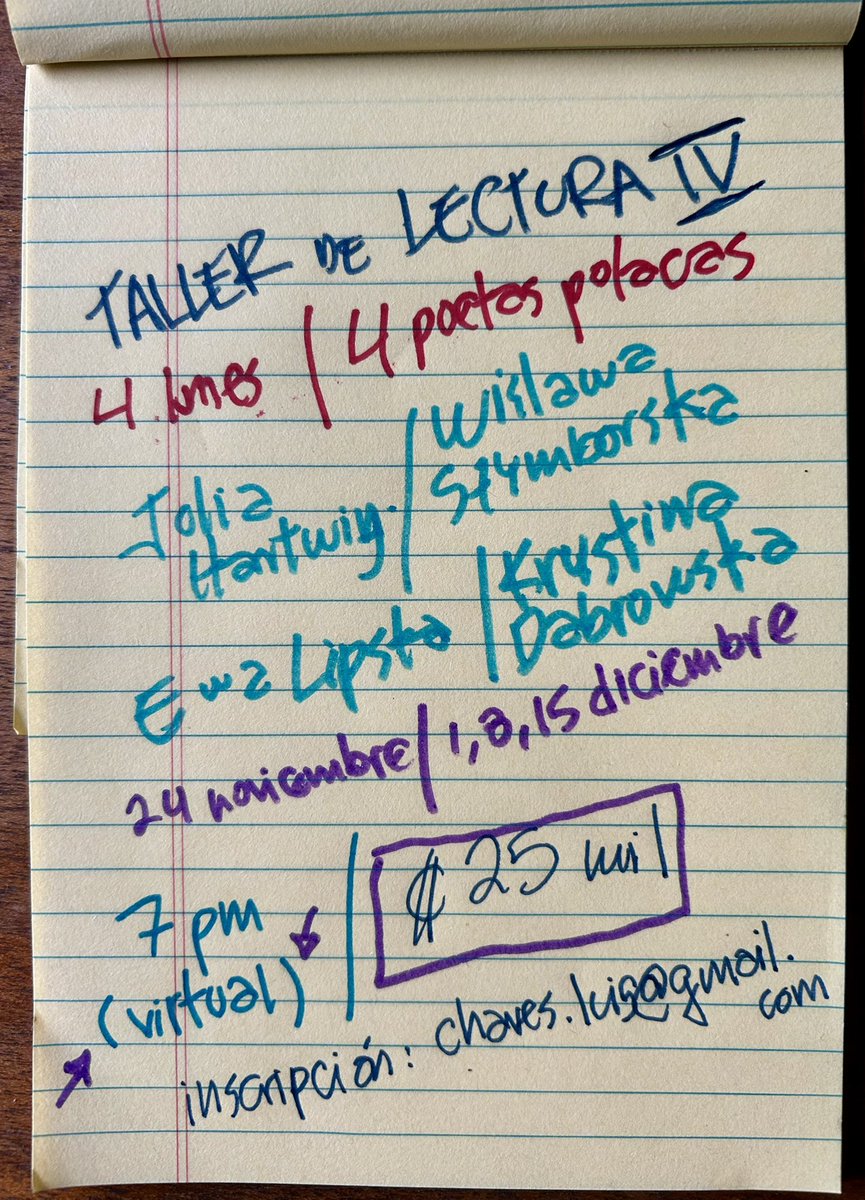 TALLER DE LECTURA IV
4 lunes / 4 poetas polacas
Jolia Hartwig / Wislawa Szymborska
Ewa Lipska / Krystina Dabrowska
24 noviembre / 1, 8, 15 diciembre
7 pm (virtual) / ₡ 25 mil
inscripción: chaves.luis@gmail.com